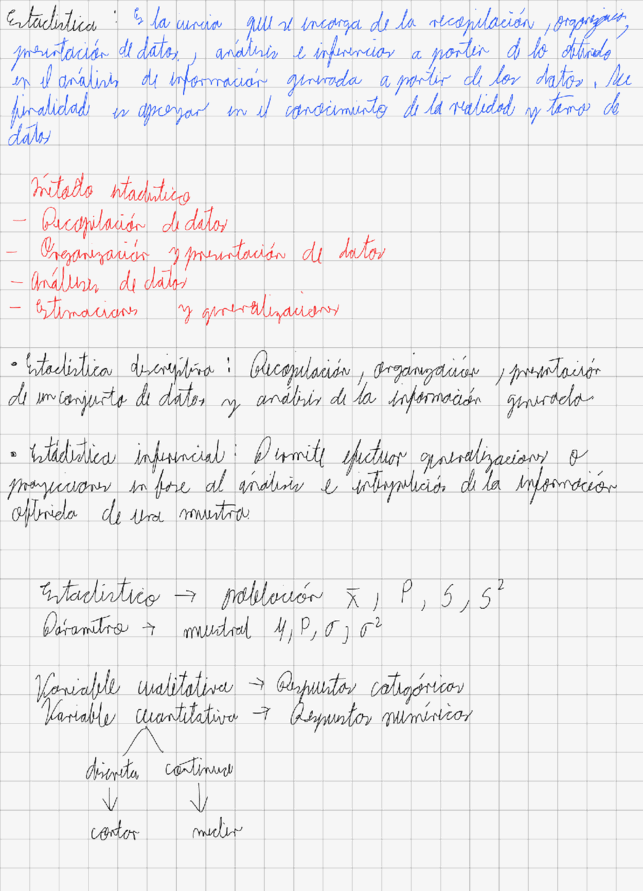 Estadística : Es la ciencia que se encarga de la recopilación, organización,
presentación de datos, análisis e inferencias a partir de lo obtenido
en el análisis de información generada a partir de los datos. Su
finalidad es apoyar en el conocimiento de la realidad y toma de
datos
Método estadístico
- Recopilación de datos
- Organización y presentación de datos
- Análisis de datos
- Estimaciones y generalizaciones
• Estadística descriptiva : Recopilación, organización, presentación
de un conjunto de datos y análisis de la información generada.
• Estadística inferencial : Permite efectuar generalizaciones o
proyecciones en base al análisis e interpretación de la información
obtenida de una muestra.
Estadístico → población x̄, P, S, S²
Parámetro → muestral μ, P, σ, σ²
Variable cualitativa → Respuestas categóricas
Variable cuantitativa → Respuestas numéricas
discreta continua
contar medir